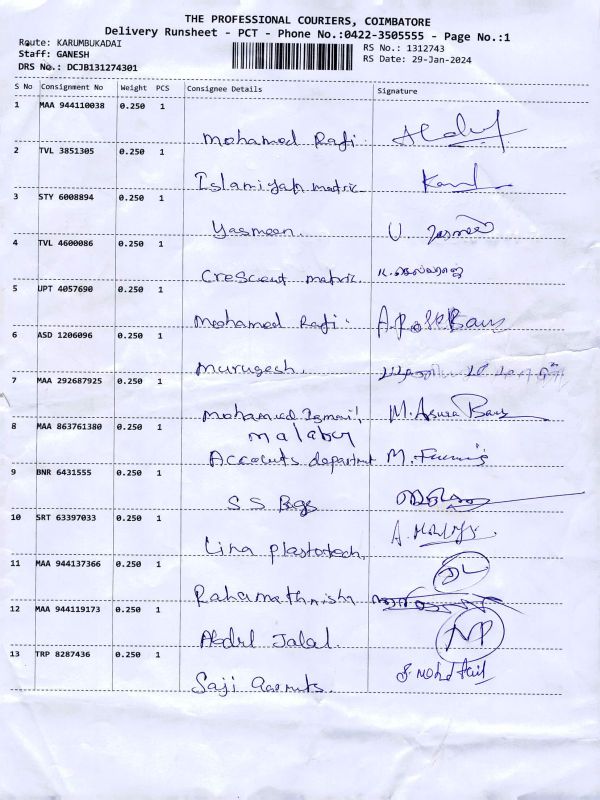 THE PROFESSIONAL COURIERS, COIMBATORE
Delivery Runsheet - PCT - Phone No.:0422-3505555 - Page No.:1
Route: KARUMBUKADAI
Staff: GANESH
DRS No.: DCJB131274301
RS No.: 1312743
RS Date: 29-Jan-2024
S No Consignment No Weight PCS Consignee Details Signature
1 MAA 944110038 0.250 1
Mohamed Rafi
2 TVL 3851305 0.250 1
Islamiyah matric
3 STY 6008894 0.250 1
Yasmeen.
4 TVL 4600086 0.250 1
Crescent matric.
5 UPT 4057690 0.250 1
Mohamed Rafi.
6 ASD 1206096 0.250 1
Murugesh.
7 MAA 292687925 0.250 1
Mohamed Ismail M. Asura Banu
8 MAA 863761380 0.250 1
malabar
Accounts department
9 BNR 6431555 0.250 1
S S Bags
10 SRT 63397033 0.250 1
Lina plastotech.
11 MAA 944137366 0.250 1
Rahamathnisha
12 MAA 944119173 0.250 1
Abdul Jalal.
13 TRP 8287436 0.250 1
Saji